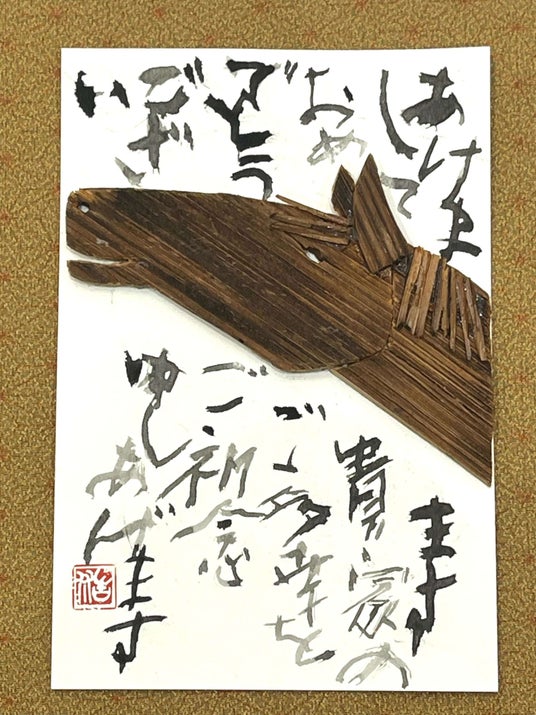 あけま
して
おめ
でとう
ござ
い
ます
貴家の
ご多幸を
ご祈念
申し
あげます